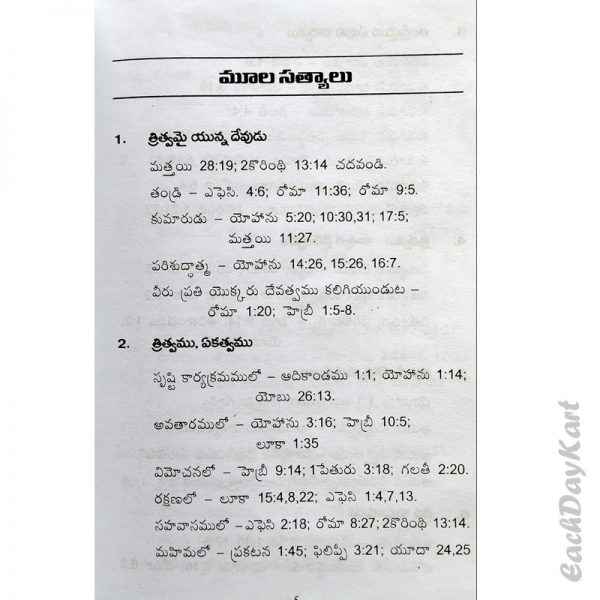 మూల సత్యాలు
1. త్రిత్వమై యున్న దేవుడు
మత్తయి 28:19; 2కొరింథి 13:14 చదవండి.
తండ్రి – ఎఫెసి. 4:6; రోమా 11:36; రోమా 9:5.
కుమారుడు – యోహాను 5:20; 10:30,31; 17:5;
మత్తయి 11:27.
పరిశుద్ధాత్మ – యోహాను 14:26, 15:26, 16:7.
వీరు ప్రతి యొక్కరు దేవత్వము కలిగియుండుట –
రోమా 1:20; హెబ్రీ 1:5-8.
2. త్రిత్వము, ఏకత్వము
సృష్టి కార్యక్రమములో – ఆదికాండము 1:1; యోహాను 1:14;
యోబు 26:13.
అవతారములో – యోహాను 3:16; హెబ్రీ 10:5;
లూకా 1:35
విమోచనలో – హెబ్రీ 9:14; 1పేతురు 3:18; గలతీ 2:20.
రక్షణలో – లూకా 15:4,8,22; ఎఫెసి 1:4,7,13.
సహవాసములో –ఎఫెసి 2:18; రోమా 8:27; 2కొరింథి 13:14.
మహిమలో – ప్రకటన 1:45; ఫిలిప్పీ 3:21; యూదా 24,25
EachDayKart